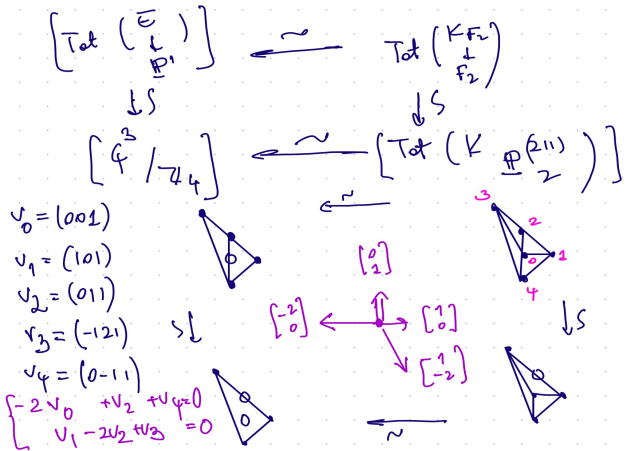 [Tot ( E̅ ↓ P¹ )] ←~ Tot ( K_{F_2} ↓ F_2 )
↓S ↓S
[ ℂ³ / ℤ_4 ] ←~ [ Tot ( K P(211) 2 ) ]
←~
v_0 = (001)
v_1 = (101)
v_2 = (011)
v_3 = (-121)
v_4 = (0-11)
{ -2v_0 +v_2 +v_4=0
v_1 -2v_2 +v_3 =0
S↓
[0 1]
[-2 0]
[1 0]
[1 -2]
3
2
0
1
4
↓S
←~